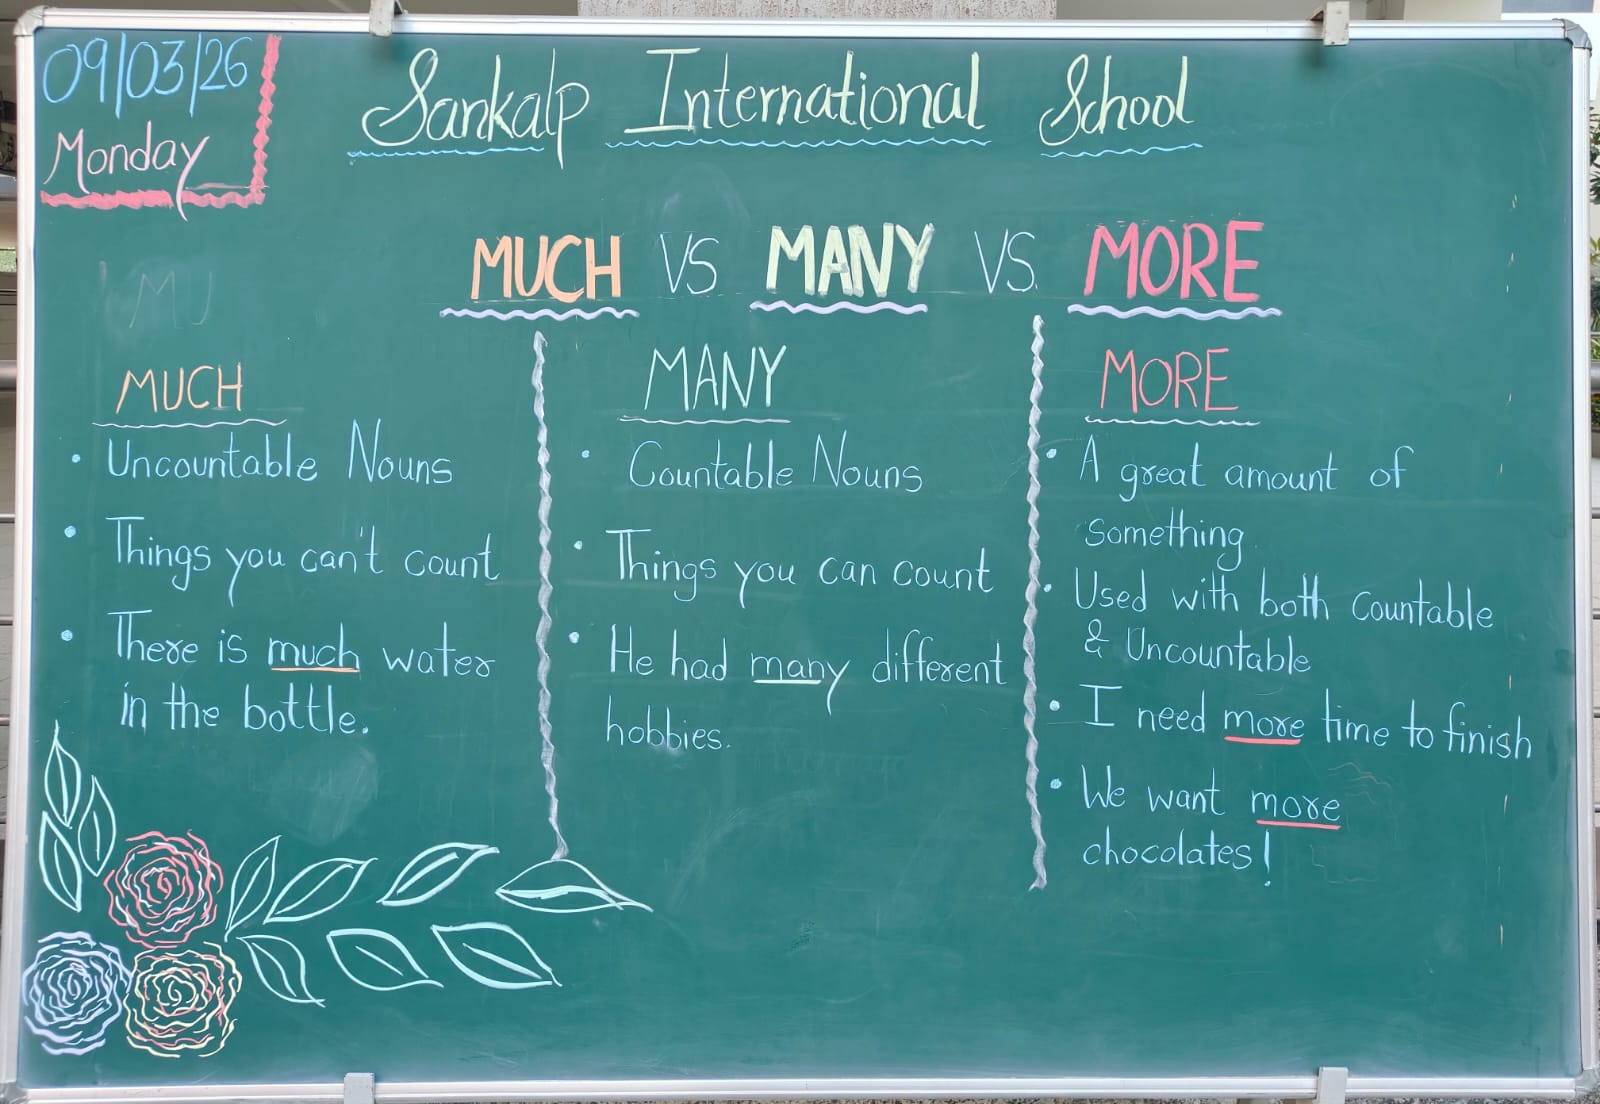 09/03/26
Monday
Sankalp International School
MUCH VS MANY VS MORE
MU
MUCH
• Uncountable Nouns
• Things you can't count
• There is much water
in the bottle.
MANY
• Countable Nouns
• Things you can count
• He had many different
hobbies.
MORE
• A great amount of
something.
• Used with both Countable
& Uncountable
• I need more time to finish
• We want more
chocolates!